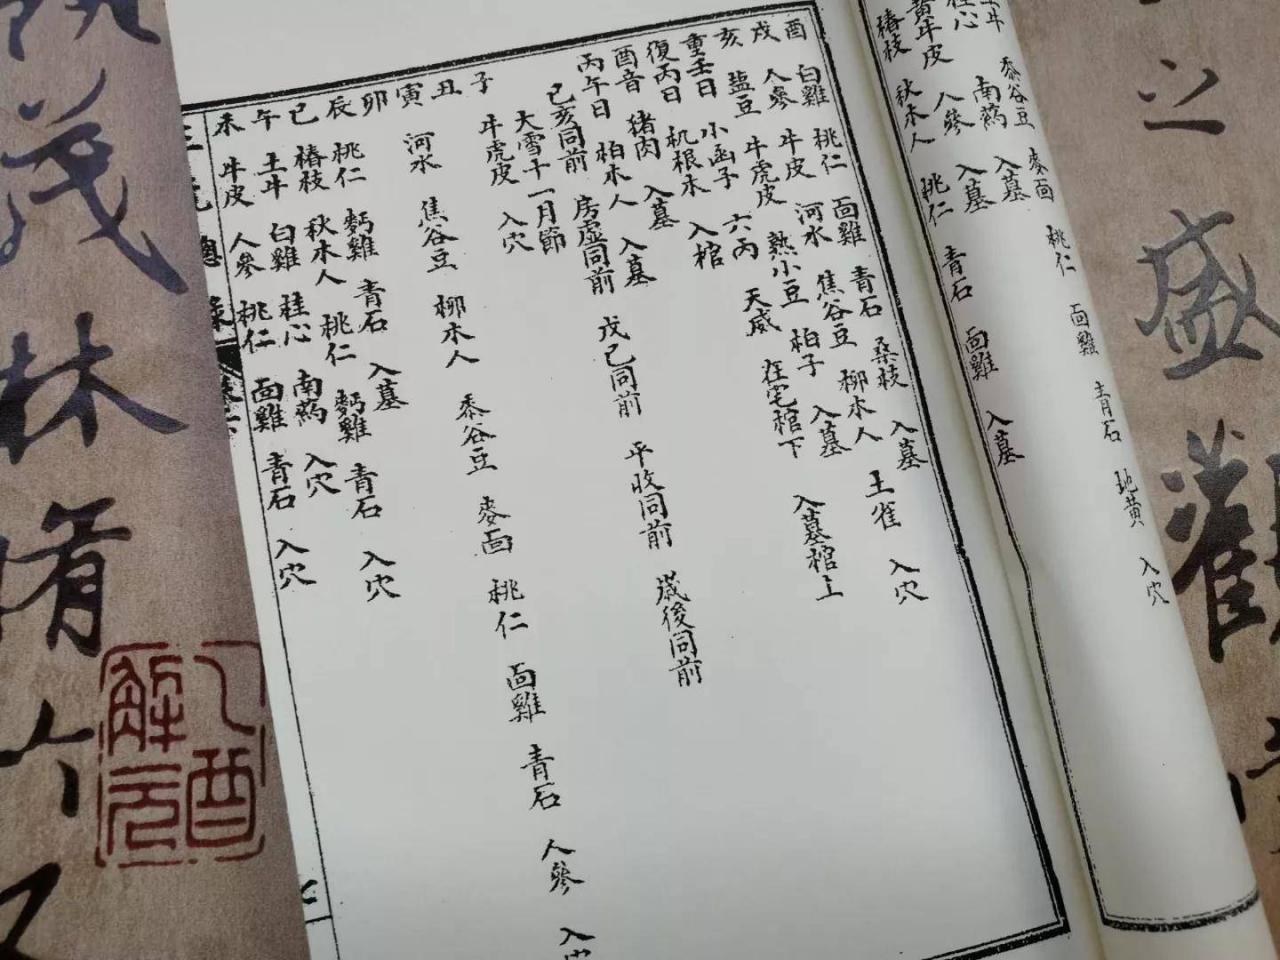 之盛
土牛 黍谷豆 麥面 桃仁 面雞 青石 地黄 入穴
桂心 南药 入墓
黄牛皮 人參 入墓
椿枝 秋木人 桃仁 青石 面雞 入墓
酉 白雞 桃仁 面雞 青石 桑枝 入墓
戌 人參 牛皮 河水 焦谷豆 柳木人 王雀 入穴
亥 盐豆 牛虎皮 熟小豆 柏子 入墓
重壬日 小函子 六丙 天威 在宅棺下 入墓棺上
復丙日 机根木 入棺
酉音 猪肉 入墓
丙午日 柏木人 入墓
己亥同前 房虚同前 戊己同前 平收同前 歲後同前
大雪十一月節
子 牛虎皮 入穴
丑
寅 河水 焦谷豆 柳木人 黍谷豆 麥面 桃仁 面雞 青石 人參 入穴
卯
辰 桃仁 麪雞 青石 入墓
巳 椿枝 秋木人 桃仁 麪雞 青石 入穴
午 土牛 白雞 桂心 南药 入穴
未 牛皮 人參 桃仁 面雞 青石 入穴
總錄
茂林脩
酉解元